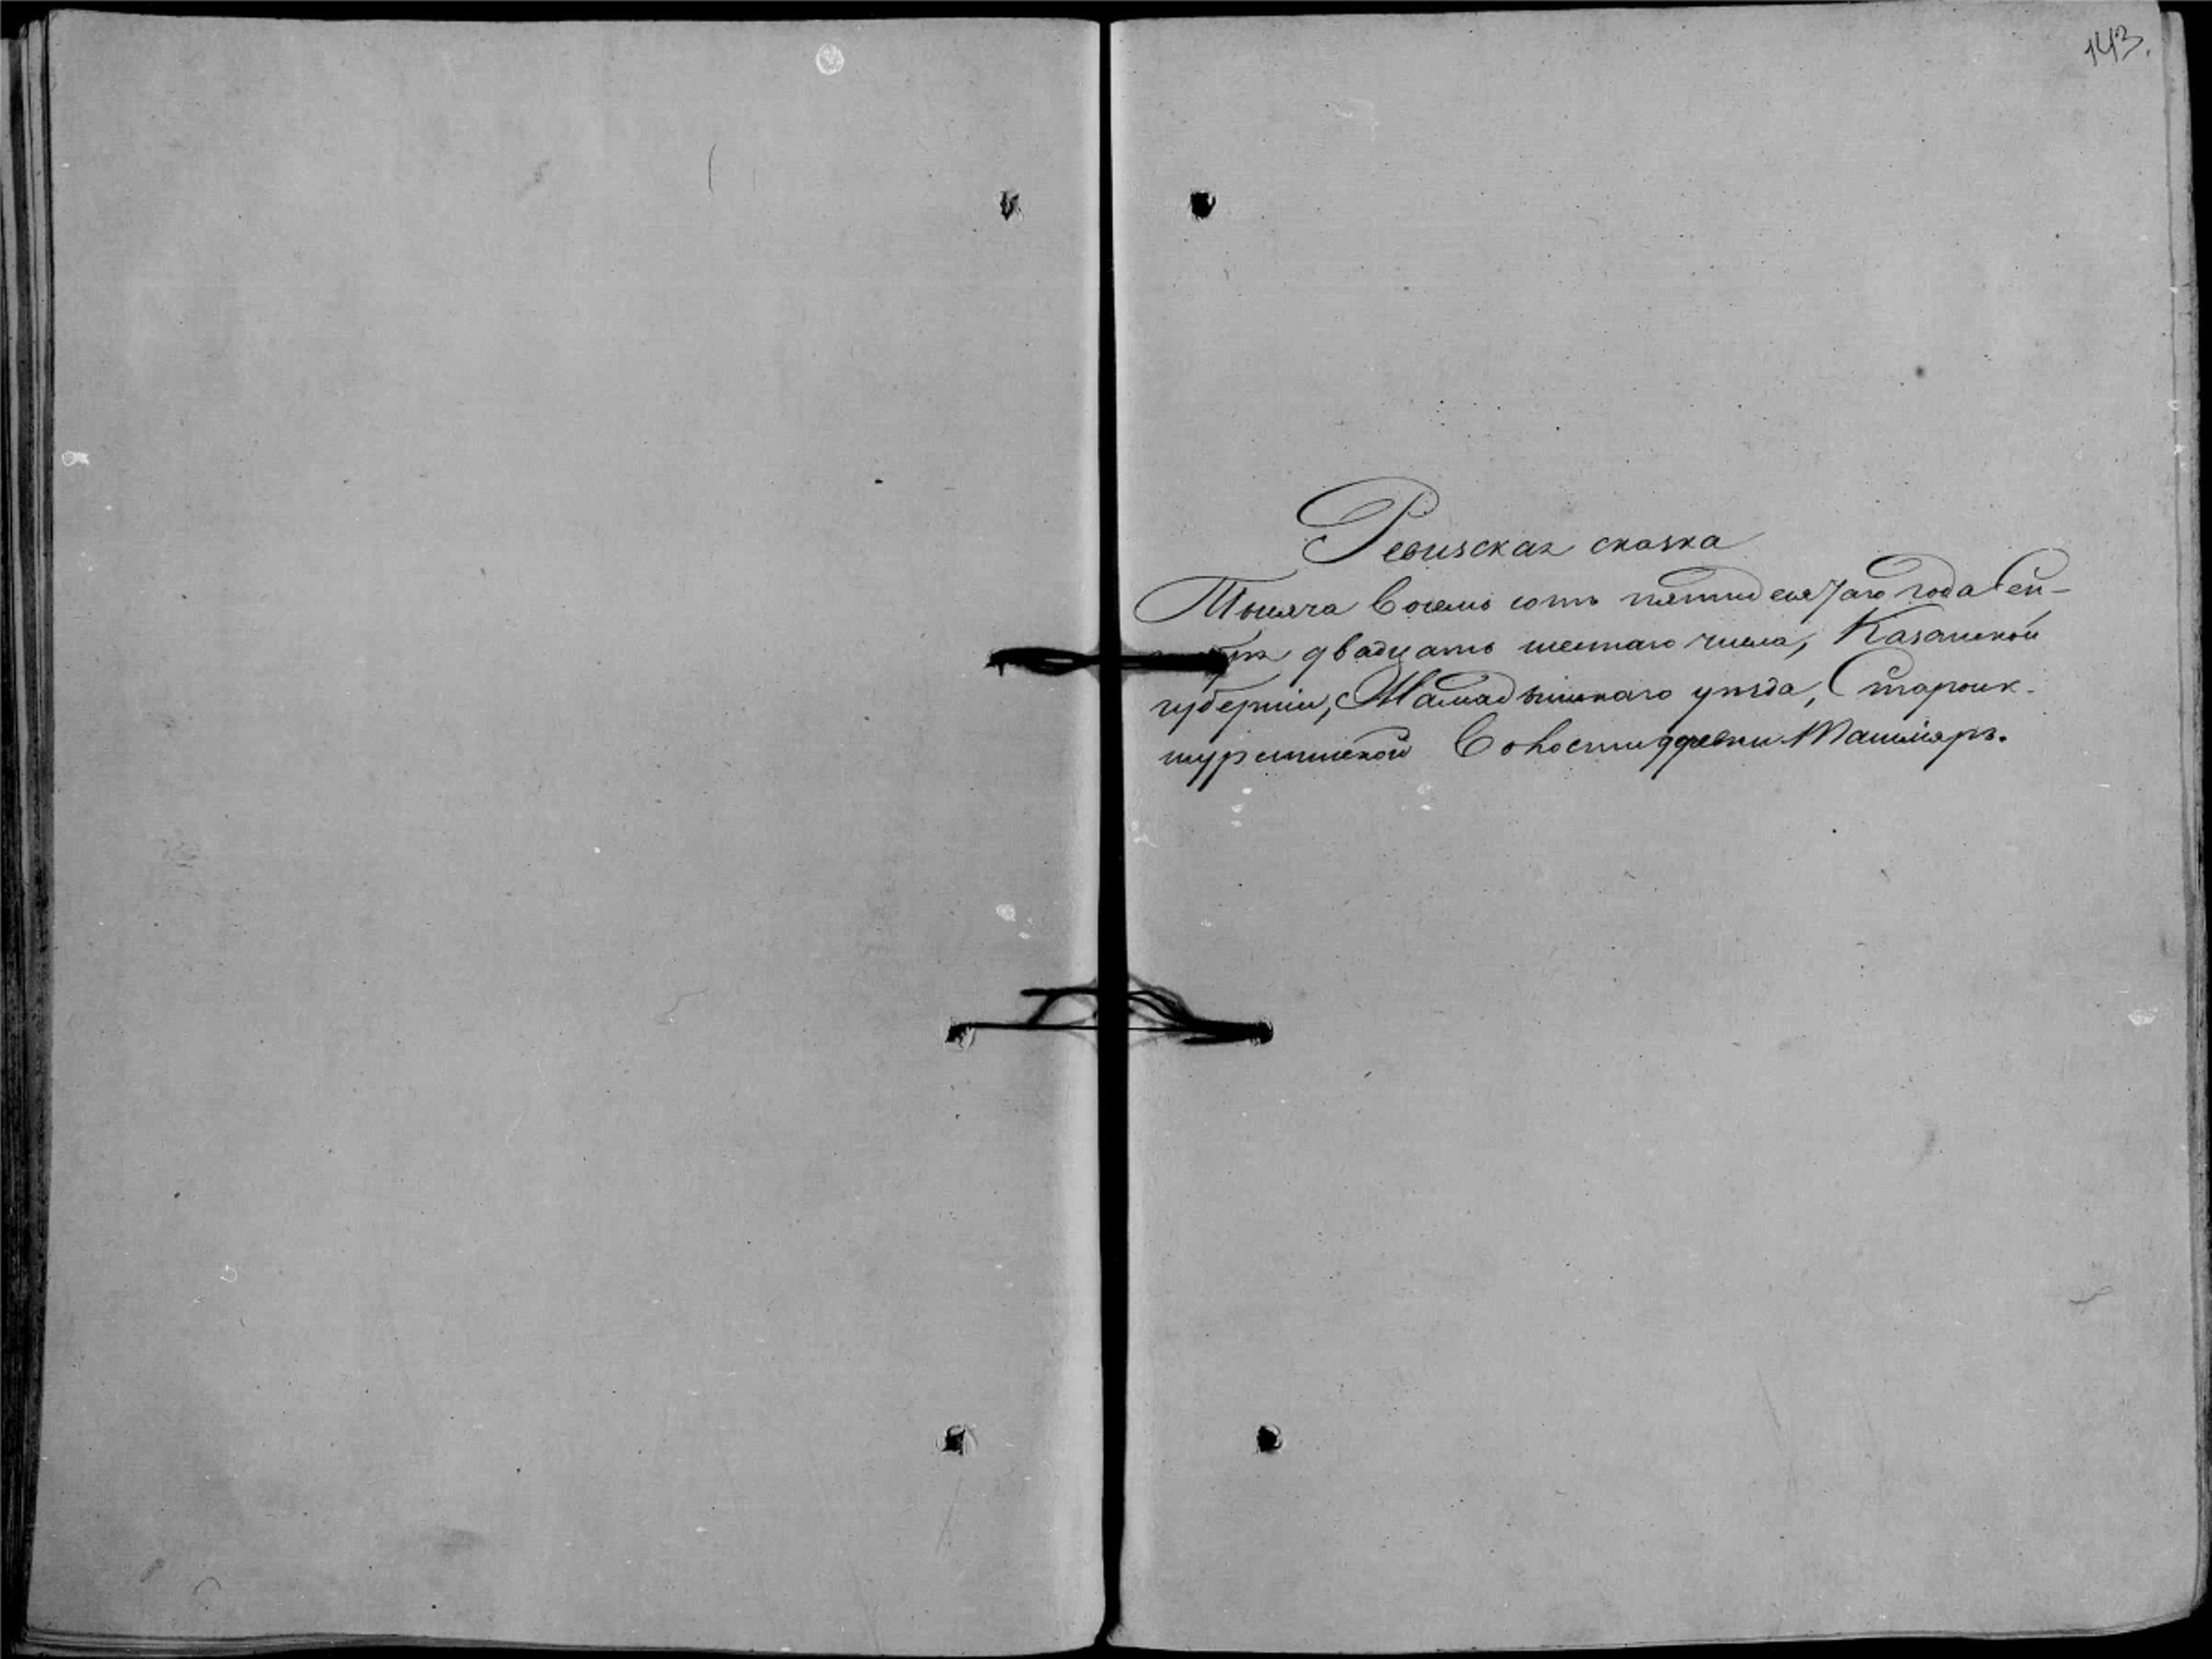 143.
Ревизская сказка
Тысяча восемь сотъ пятидесятаго года Сен-
тября двадцать шестаго числа, Казанской
губерніи, Мамадышскаго уѣзда, Староик-
шурминской Волости деревни Ташлияръ.